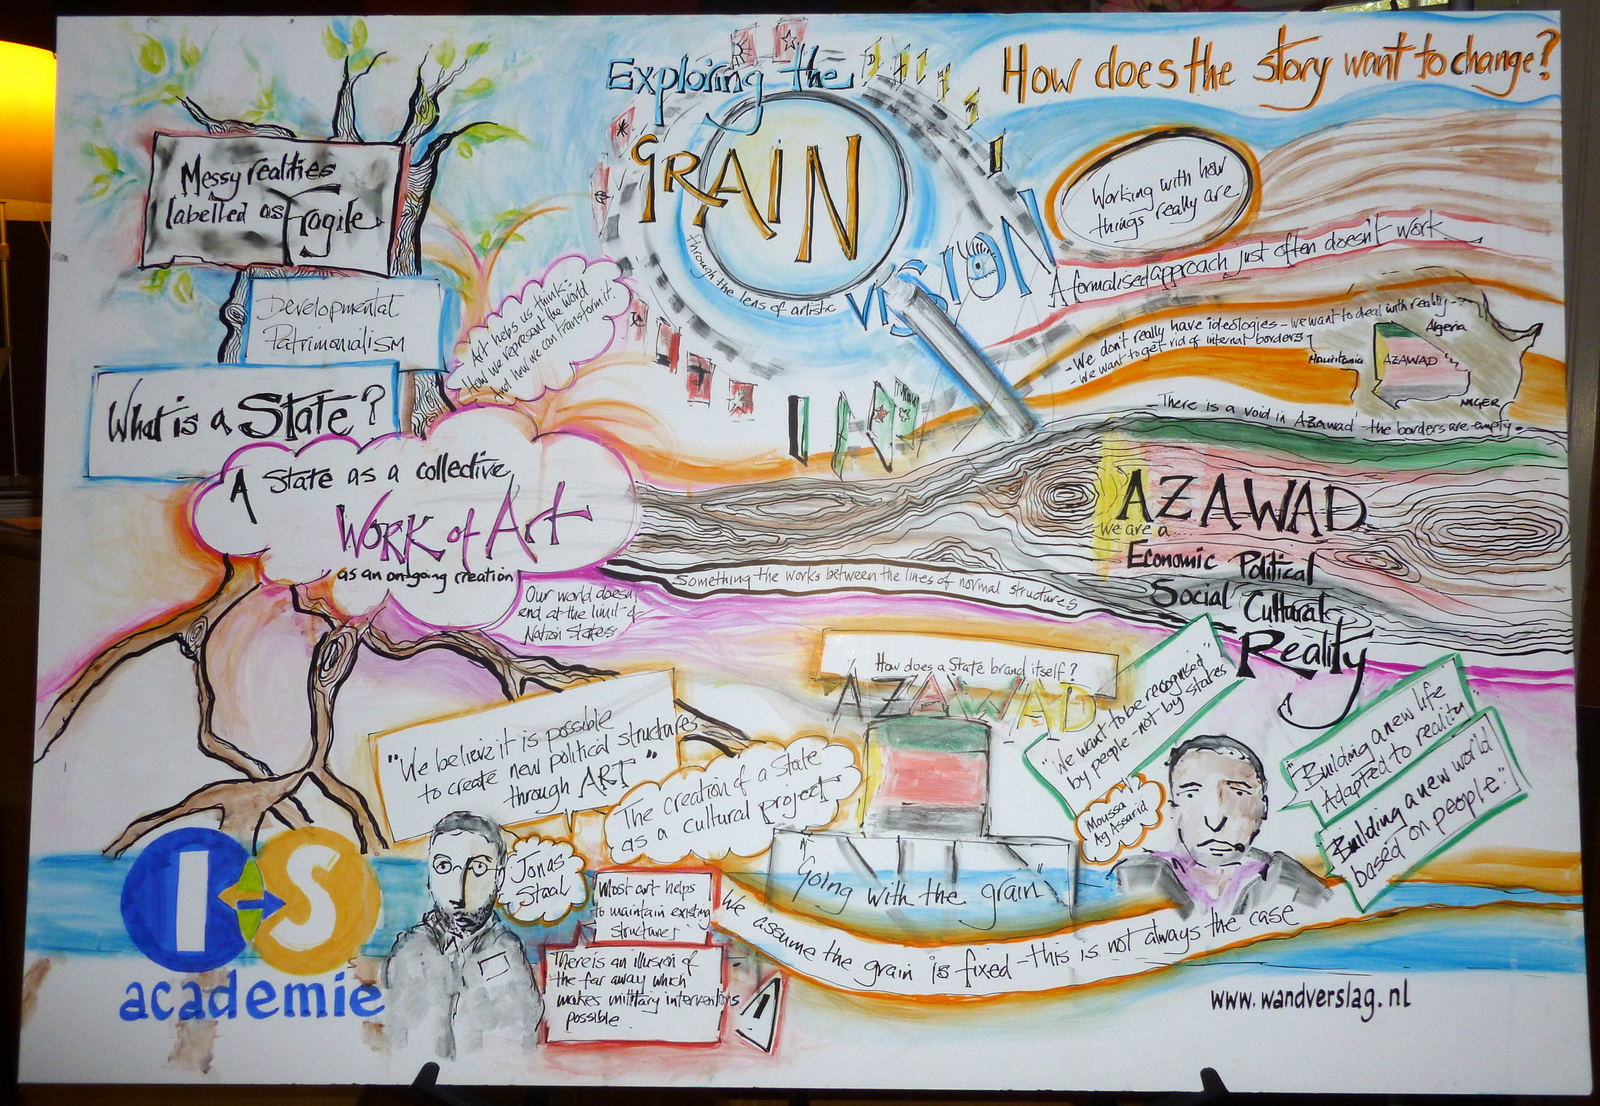 Exploring the
GRAIN
through the lens of artistic
VISION
How does the story want to change?
Messy realities
labelled as Fragile
Developmental
Patrimonialism
What is a State?
Art helps us think:
How we represent the world
And how we can transform it.
Working with how
things really are
A formalised approach just often doesn't work
- We don't really have ideologies - we want to deal with reality -
- We want to get rid of internal borders
Algeria
Mauritania
AZAWAD
NIGER
There is a void in Azawad - the borders are empty.
A State as a collective
WORK of Art
as an on-going creation
AZAWAD
we are a....
Economic Political
Social Cultural
Reality
Something the works between the lines of normal structures
Our world doesn't
end at the limit of
Nation States
How does a State brand itself?
AZAWAD
"We want to be recognised
by people - not by States"
Moussa
Ag Assarid
"Building a new life
Adapted to reality"
"Building a new world
based on people."
"We believe it is possible
to create new political structures
through ART"
The creation of a State
as a cultural project
Jonas
Staal
Most art helps
to maintain existing
structures
There is an illusion of
the far away which
makes military interventions
possible.
"Going with the grain"
We assume the grain is fixed - this is not always the case
I S
academie
www.wandverslag.nl